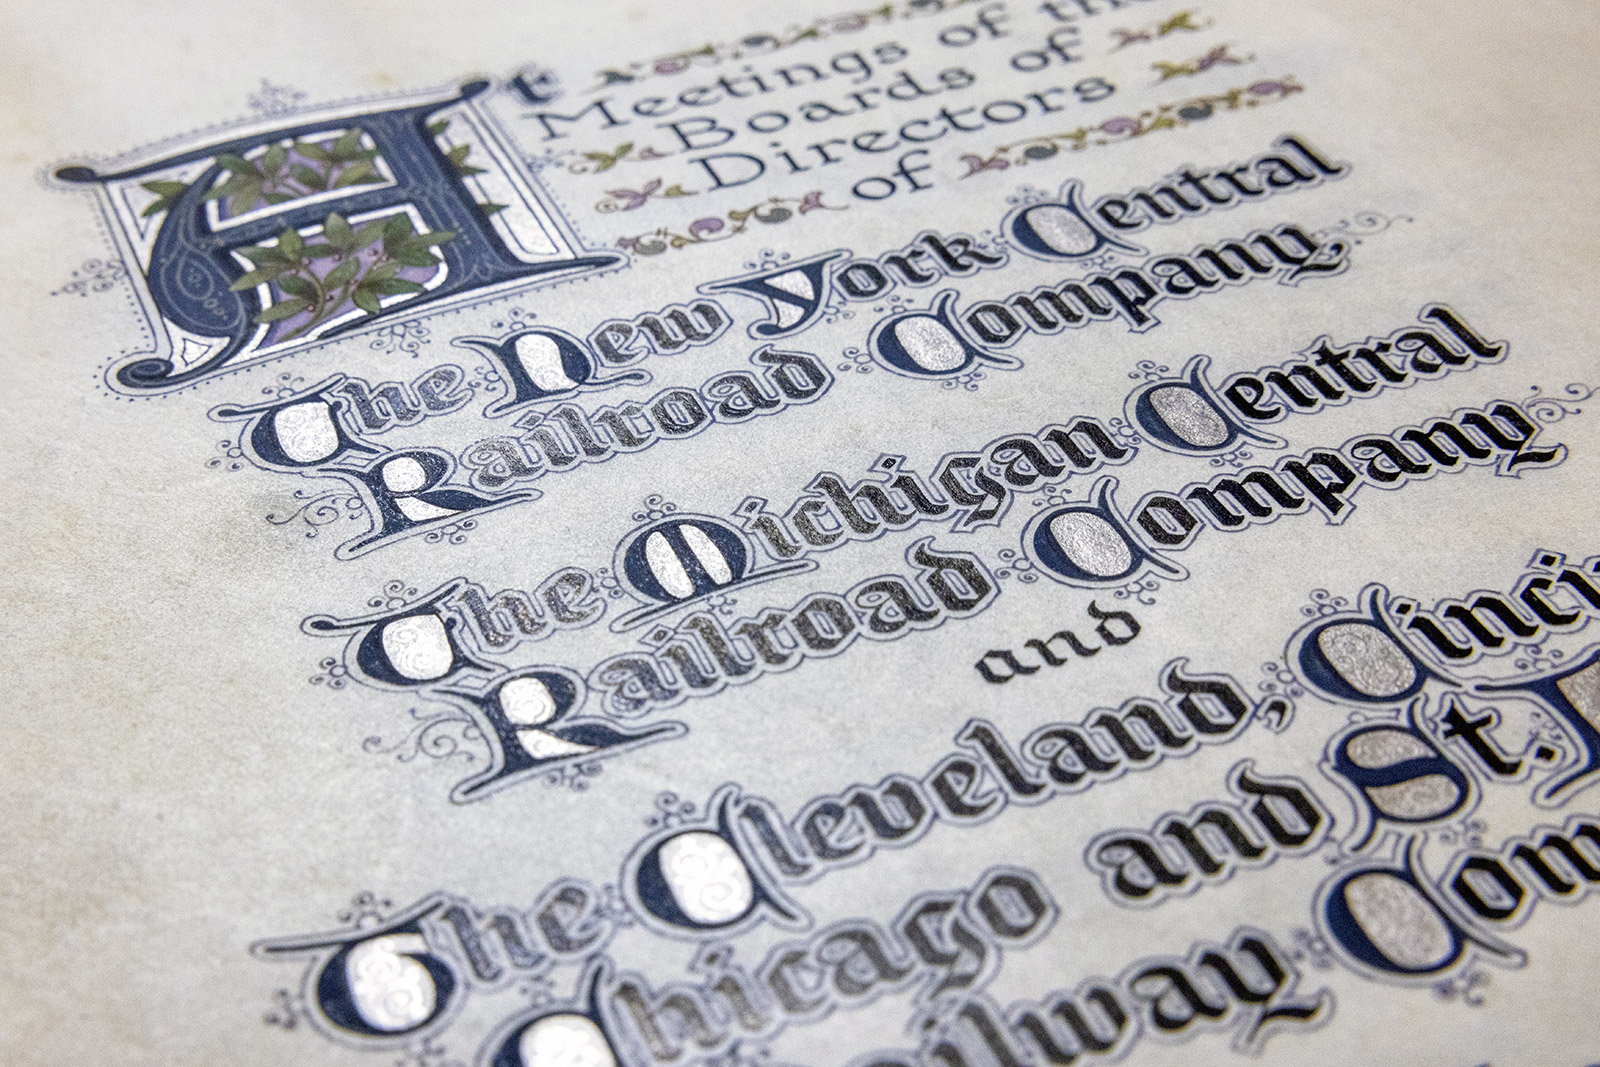 At
Meetings of the
Boards of
Directors
of
The New York Central
Railroad Company
The Michigan Central
Railroad Company
and
The Cleveland, Cinci
Chicago and St.
ailway Com